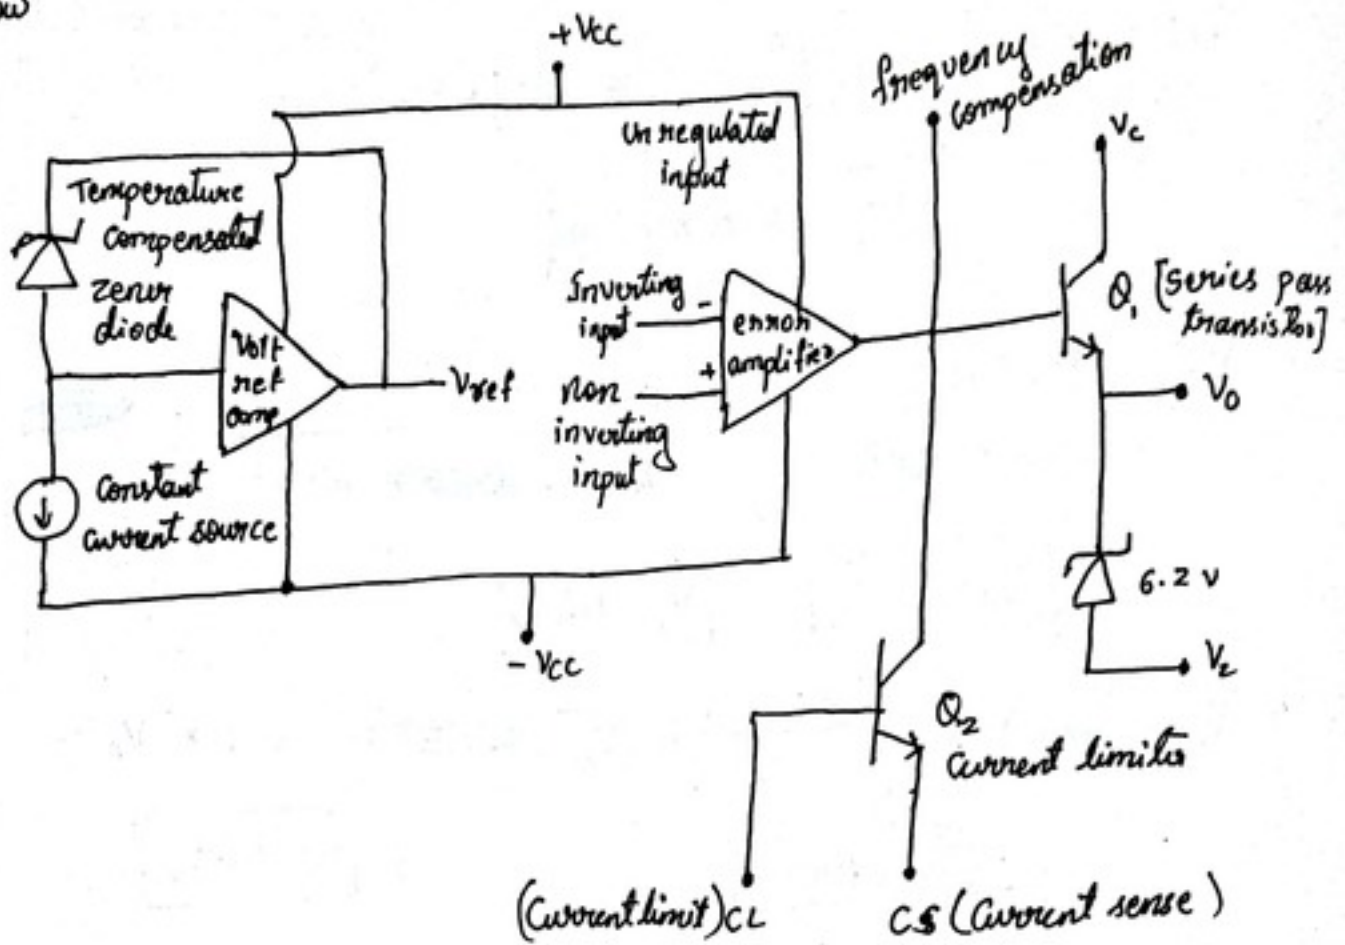 +Vcc
frequency
compensation
Vc
unregulated
input
Temperature
compensated
zener
diode
Inverting
input
-
error
amplifier
+
non
inverting
input
Q1 [series pass
transistor]
Volt
ref
amp
Vref
Vo
Constant
current source
6.2 v
-Vcc
Vz
Q2
Current limiter
(Current limit) CL
CS (Current sense)